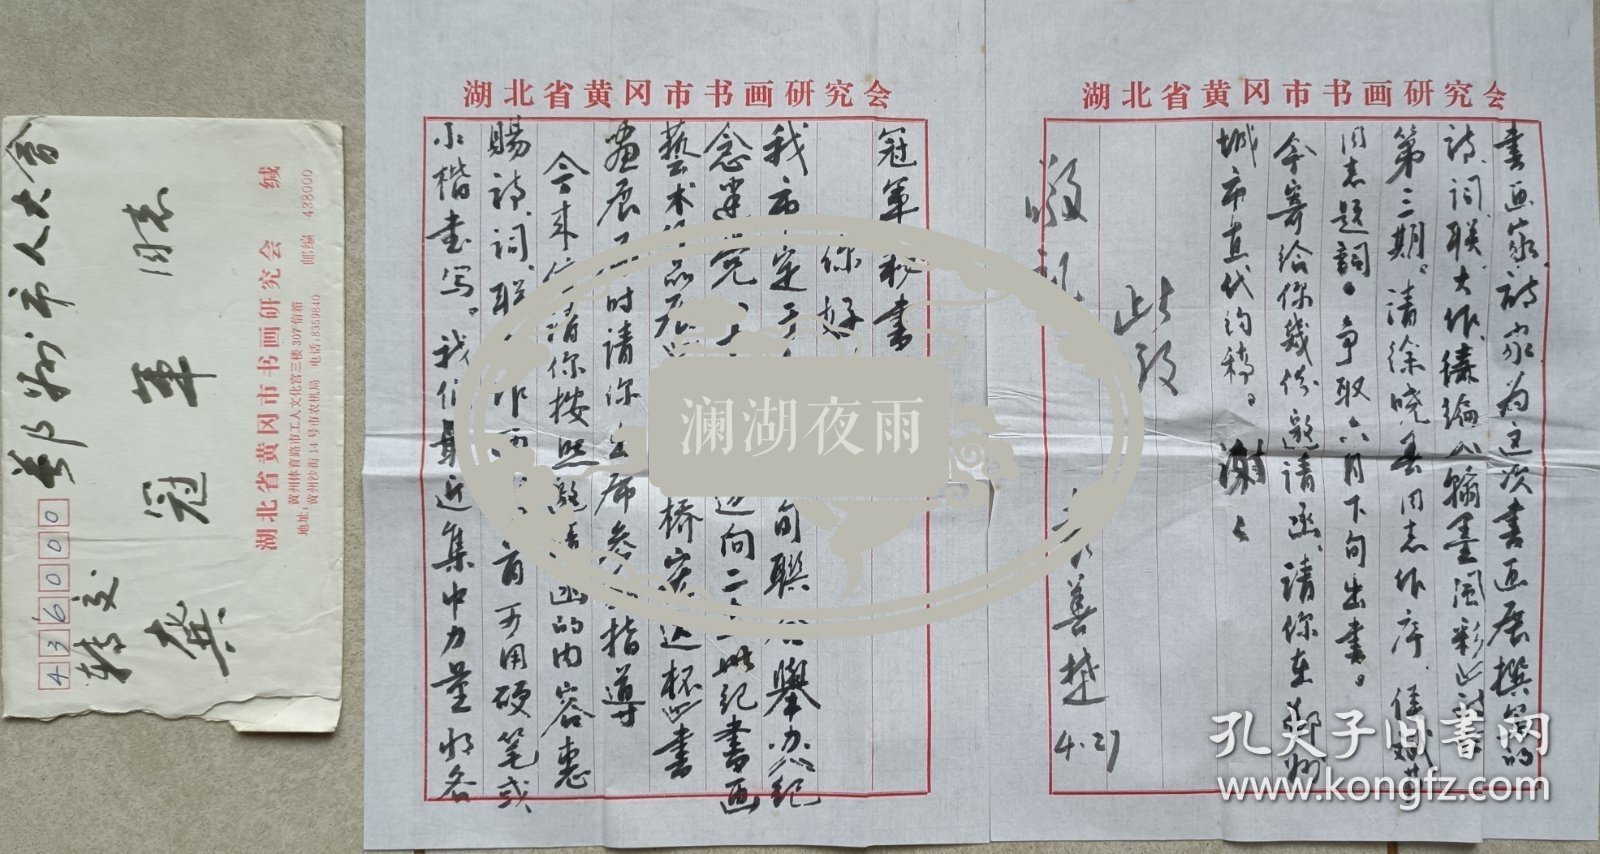 鄂州市人大会
转交
龚冠军 同志
436000
湖北省黄冈市书画研究会 缄
黄州体育路市工人文化宫三楼307信箱
地址：黄州沙街14号市农机局 电话：8359840 邮编 438000
湖北省黄冈市书画研究会
冠军秘书
你好
我市定于 旬联合举办纪
念建党 迈向二十一世纪书画
艺术作品展 桥安达杯 书
画展 时请你出席参 指导
今来信请你按照邀请函的内容惠
赐诗、词、联 可用硬笔或
小楷书写。我们最近集中力量将各
湖北省黄冈市书画研究会
书画家、诗家为这次书画展撰写的
诗、词、联大作、 翰墨闻彩
第三期。请徐晓春同志作序，
同志题词。争取六月下旬出书。
今寄给你几份邀请函、请你在鄂州
城市直代约稿。谢谢
此致
敬礼
善楚
4.27
澜湖夜雨
孔夫子旧书网
www.kongfz.com